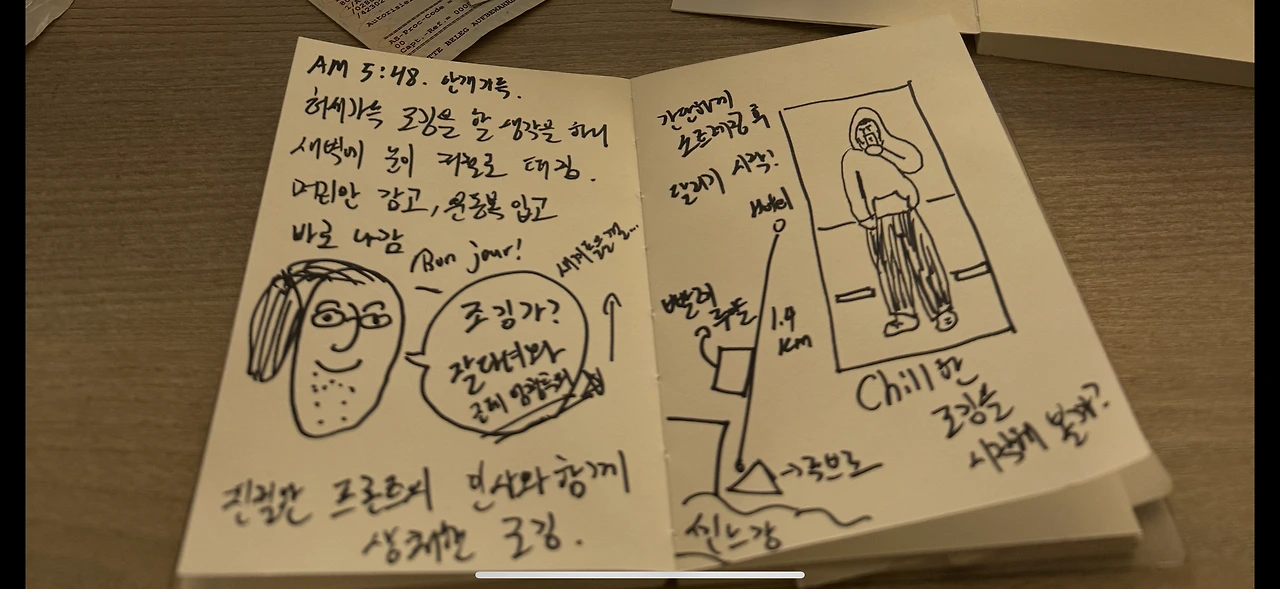 Autorisier
AS-Proc-Code =
00
Capt.-Ref.= 000
TTE BELEG AUFBEWAHRE
AM 5:48. 안개가득.
허세가득 조깅을 할 생각을 하니
새벽에 눈이 저절로 떠짐.
머리안 감고, 운동복 입고
바로 나감
Bon jour!
조깅가?
잘다녀와
친절한 프론트의 인사와 함께
상쾌한 조깅.
간단하게
스트레칭 후
달리기 시작!
Hotel
1.4
KM
루브르
쎈느강
Chill한
조깅을
시작해 볼까?